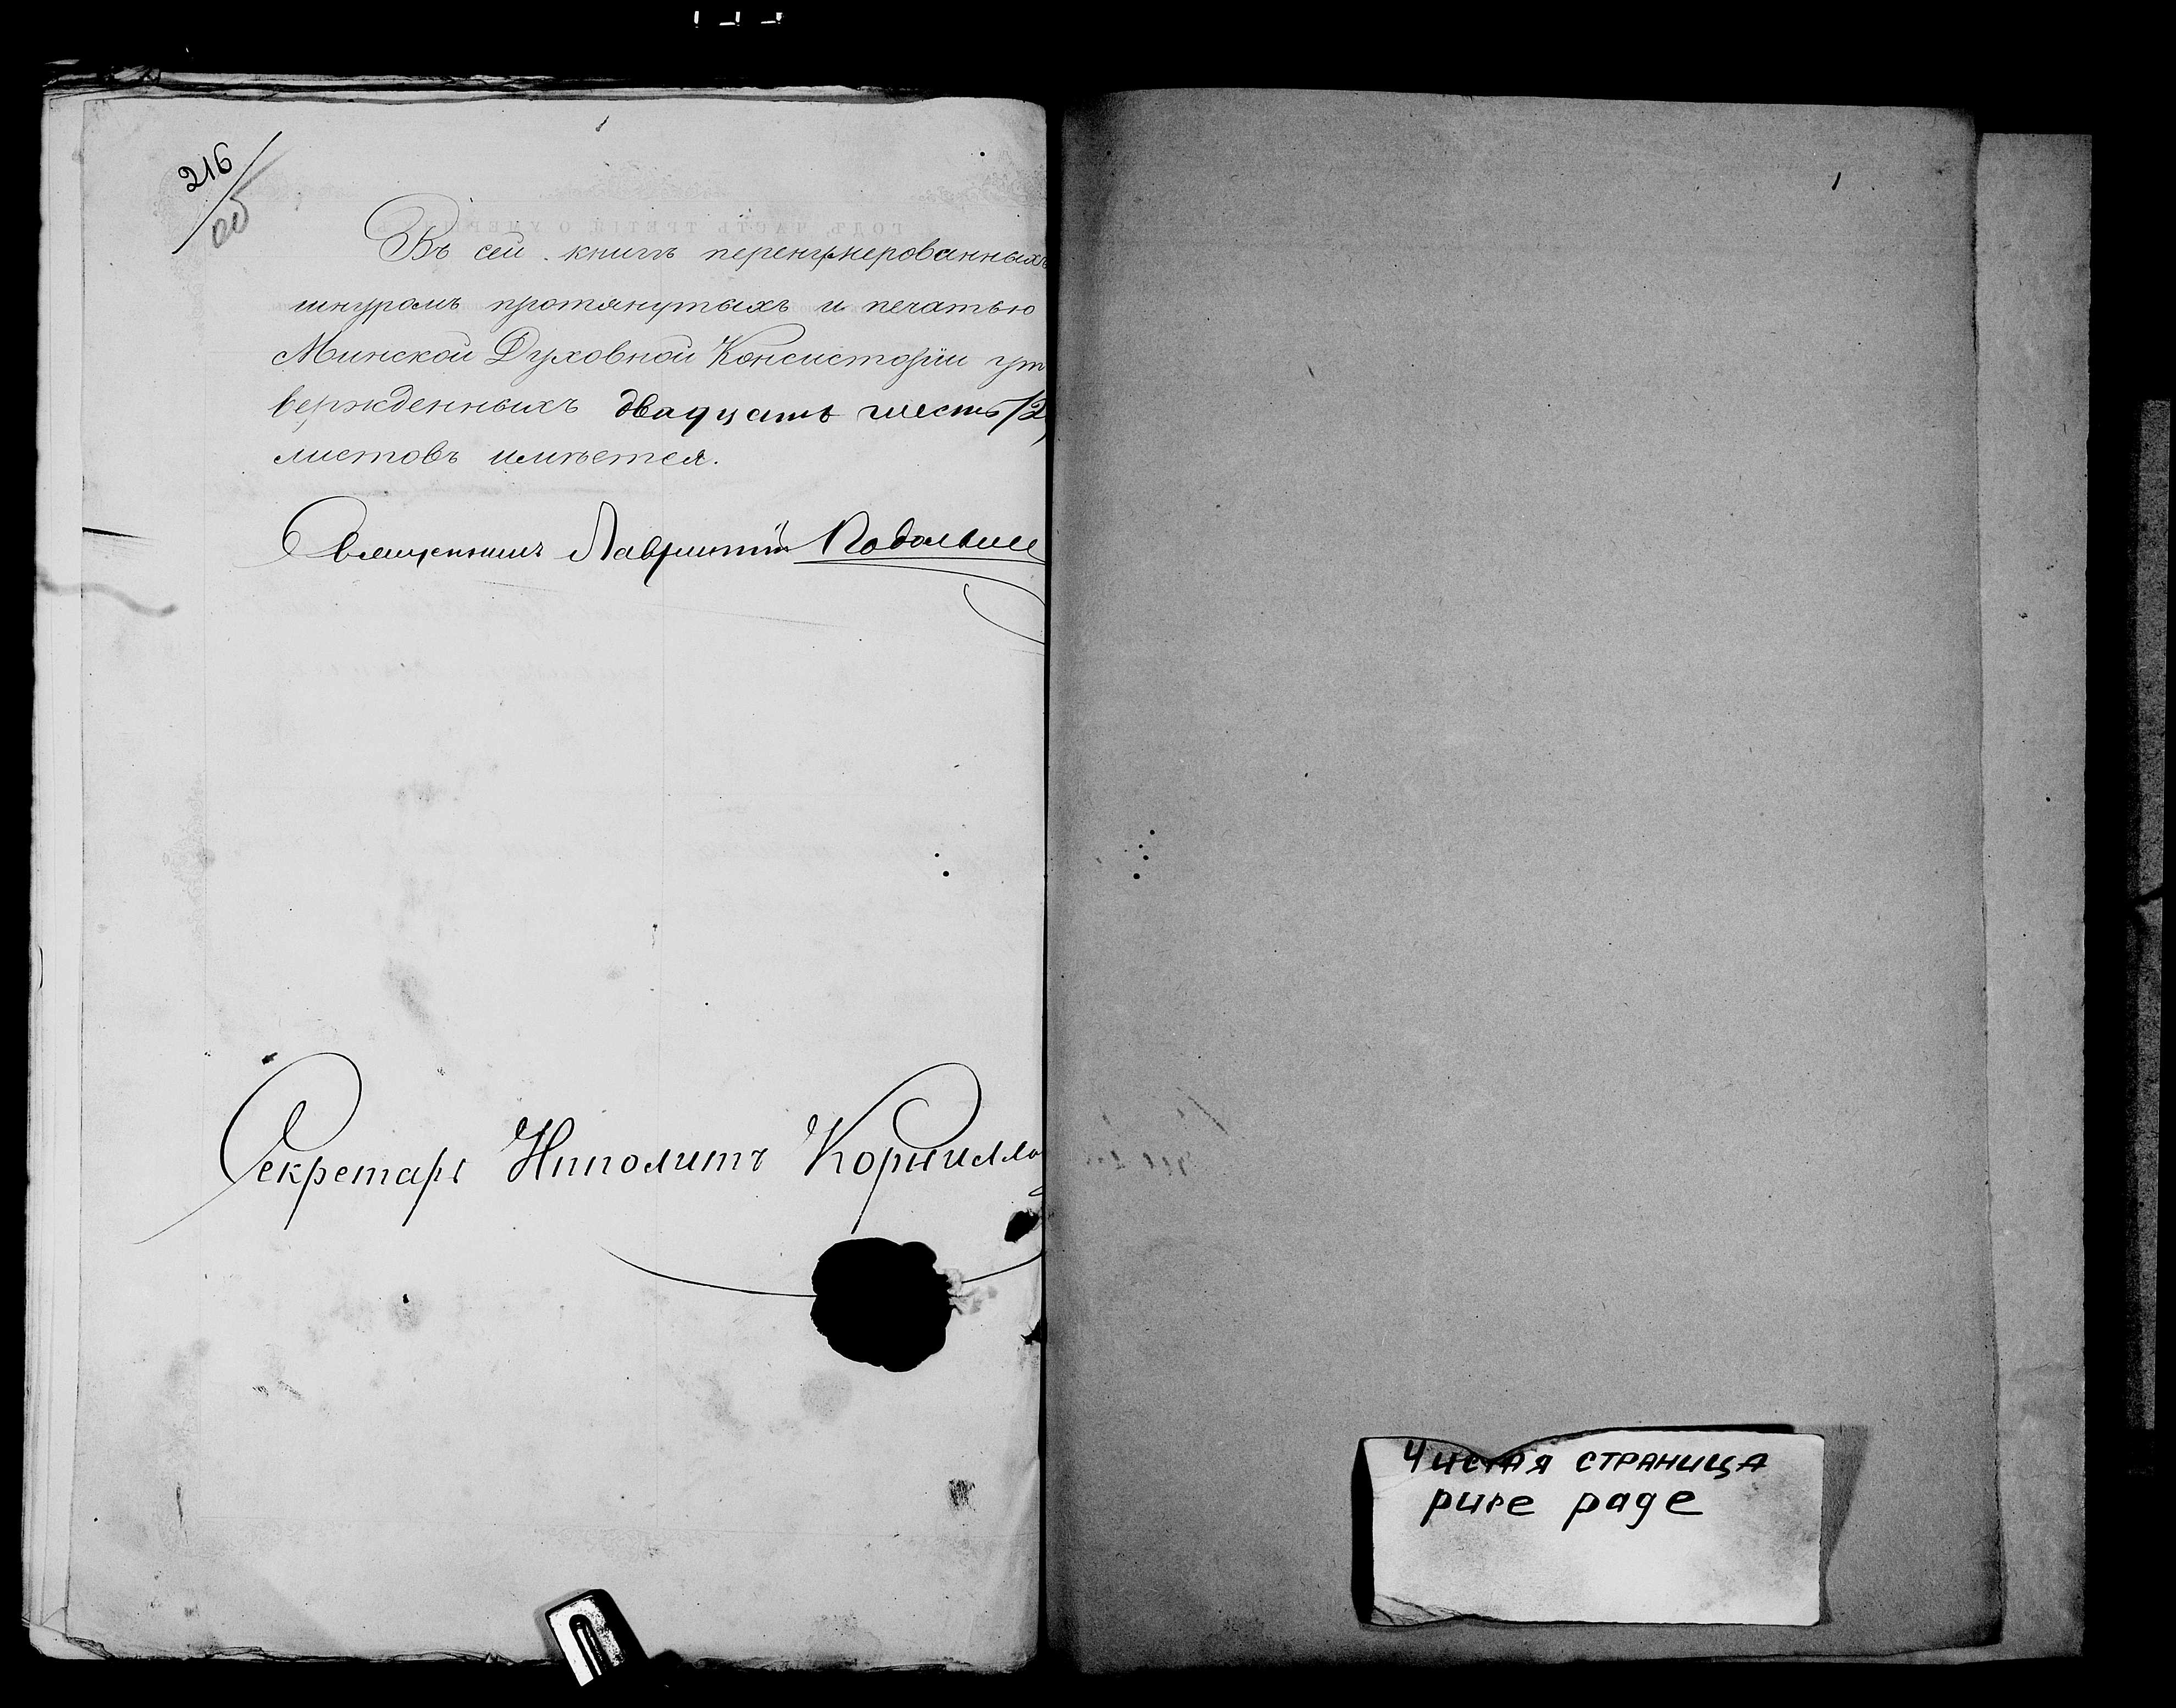 216
об
Въ сей книгѣ перенумерованныхъ
шнуромъ протянутыхъ и печатью
Минской Духовной Консисторіи ут
вержденныхъ двадцать шесть /2
листовъ имѣется.
Священникъ Лаврентій
Секретарь Ипполитъ Корнилло
Чистая страница
pure page